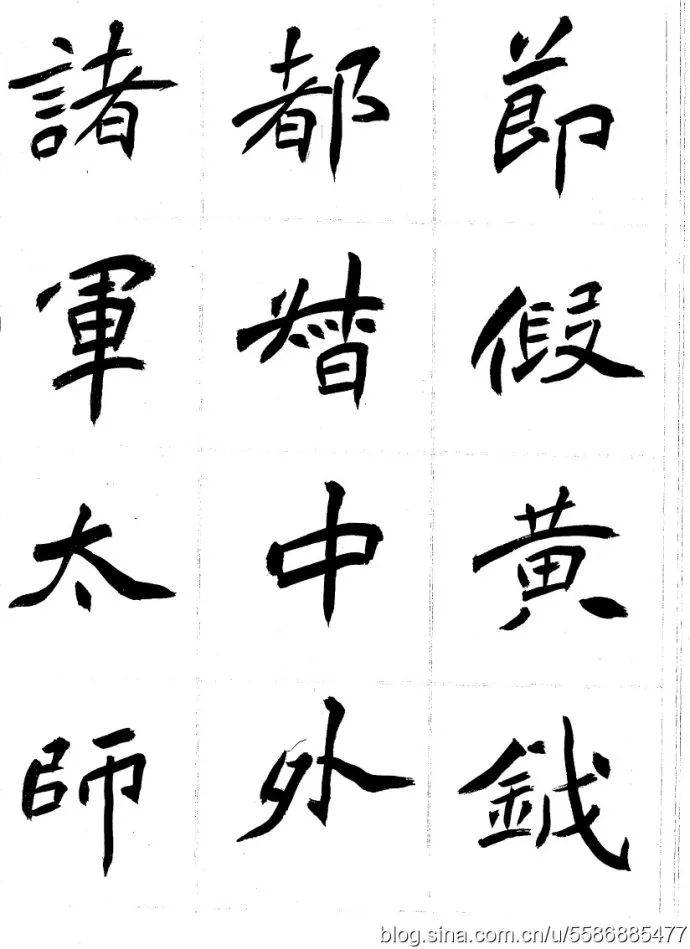 節假黄鉞
都督中外
諸軍太師
blog.sina.com.cn/u/5586885477